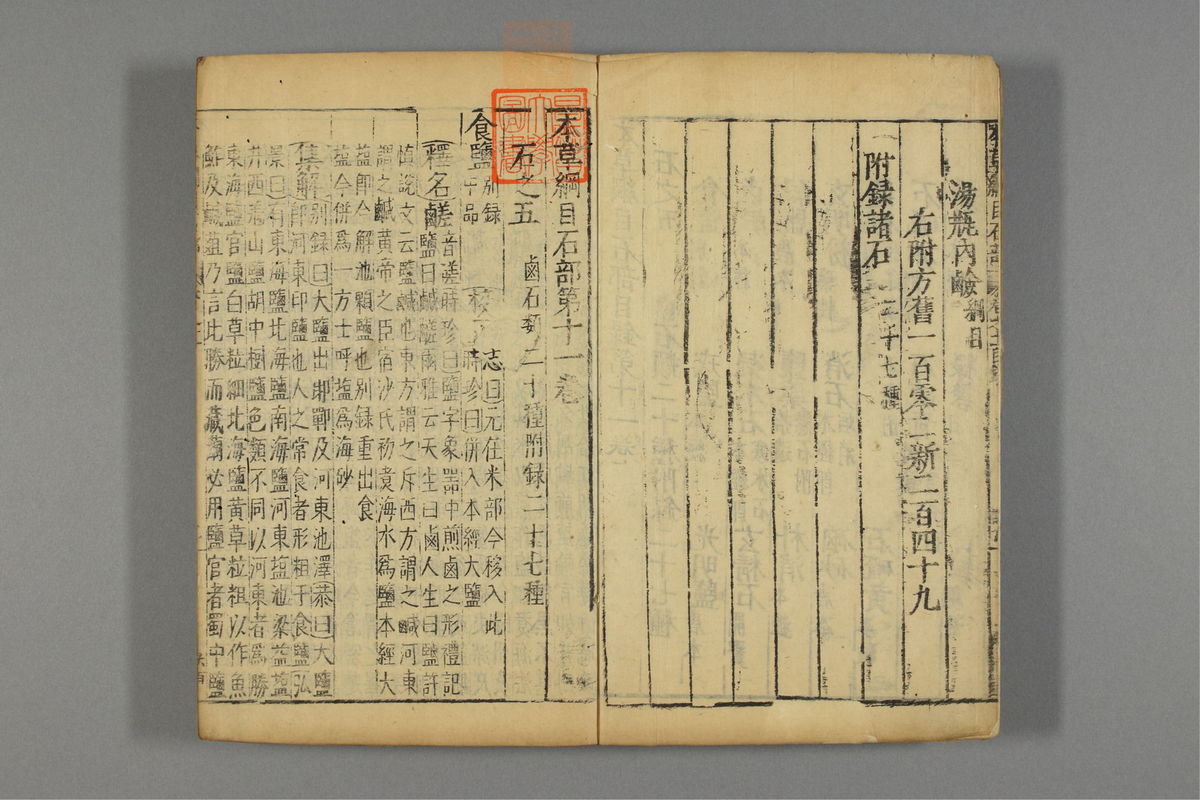 湯瓶内鹼 綱目
右附方舊一百零二新二百四十九
附録諸石 二十七種
本草綱目石部第十一卷
石之五 鹵石類二十種附録二十七種
食鹽 别録中品 志曰元在米部今移入此
時珍曰併入本經大鹽
釋名鹺音嵯時珍曰鹽字象器中煎鹵之形禮記
鹽曰鹹鹺爾雅云天生曰鹵人生曰鹽許
慎説文云鹽鹹也東方謂之斥西方謂之鹹河東
謂之鹹黄帝之臣宿沙氏初煮海水爲鹽本經大
鹽即今解池顆鹽也别録重出食
鹽今併爲一方士呼鹽爲海砂
集解别録曰大鹽出邯鄲及河東池澤恭曰大鹽
即河東印鹽也人之常食者形粗于食鹽弘
景曰有東海鹽北海鹽南海鹽河東鹽池梁益鹽
井西羌山鹽胡中樹鹽色類不同以河東者爲勝
東海鹽官鹽白草粒細北海鹽黄草粒粗以作魚
鮓及鹹菹乃言北勝而藏繭必用鹽官者蜀中鹽